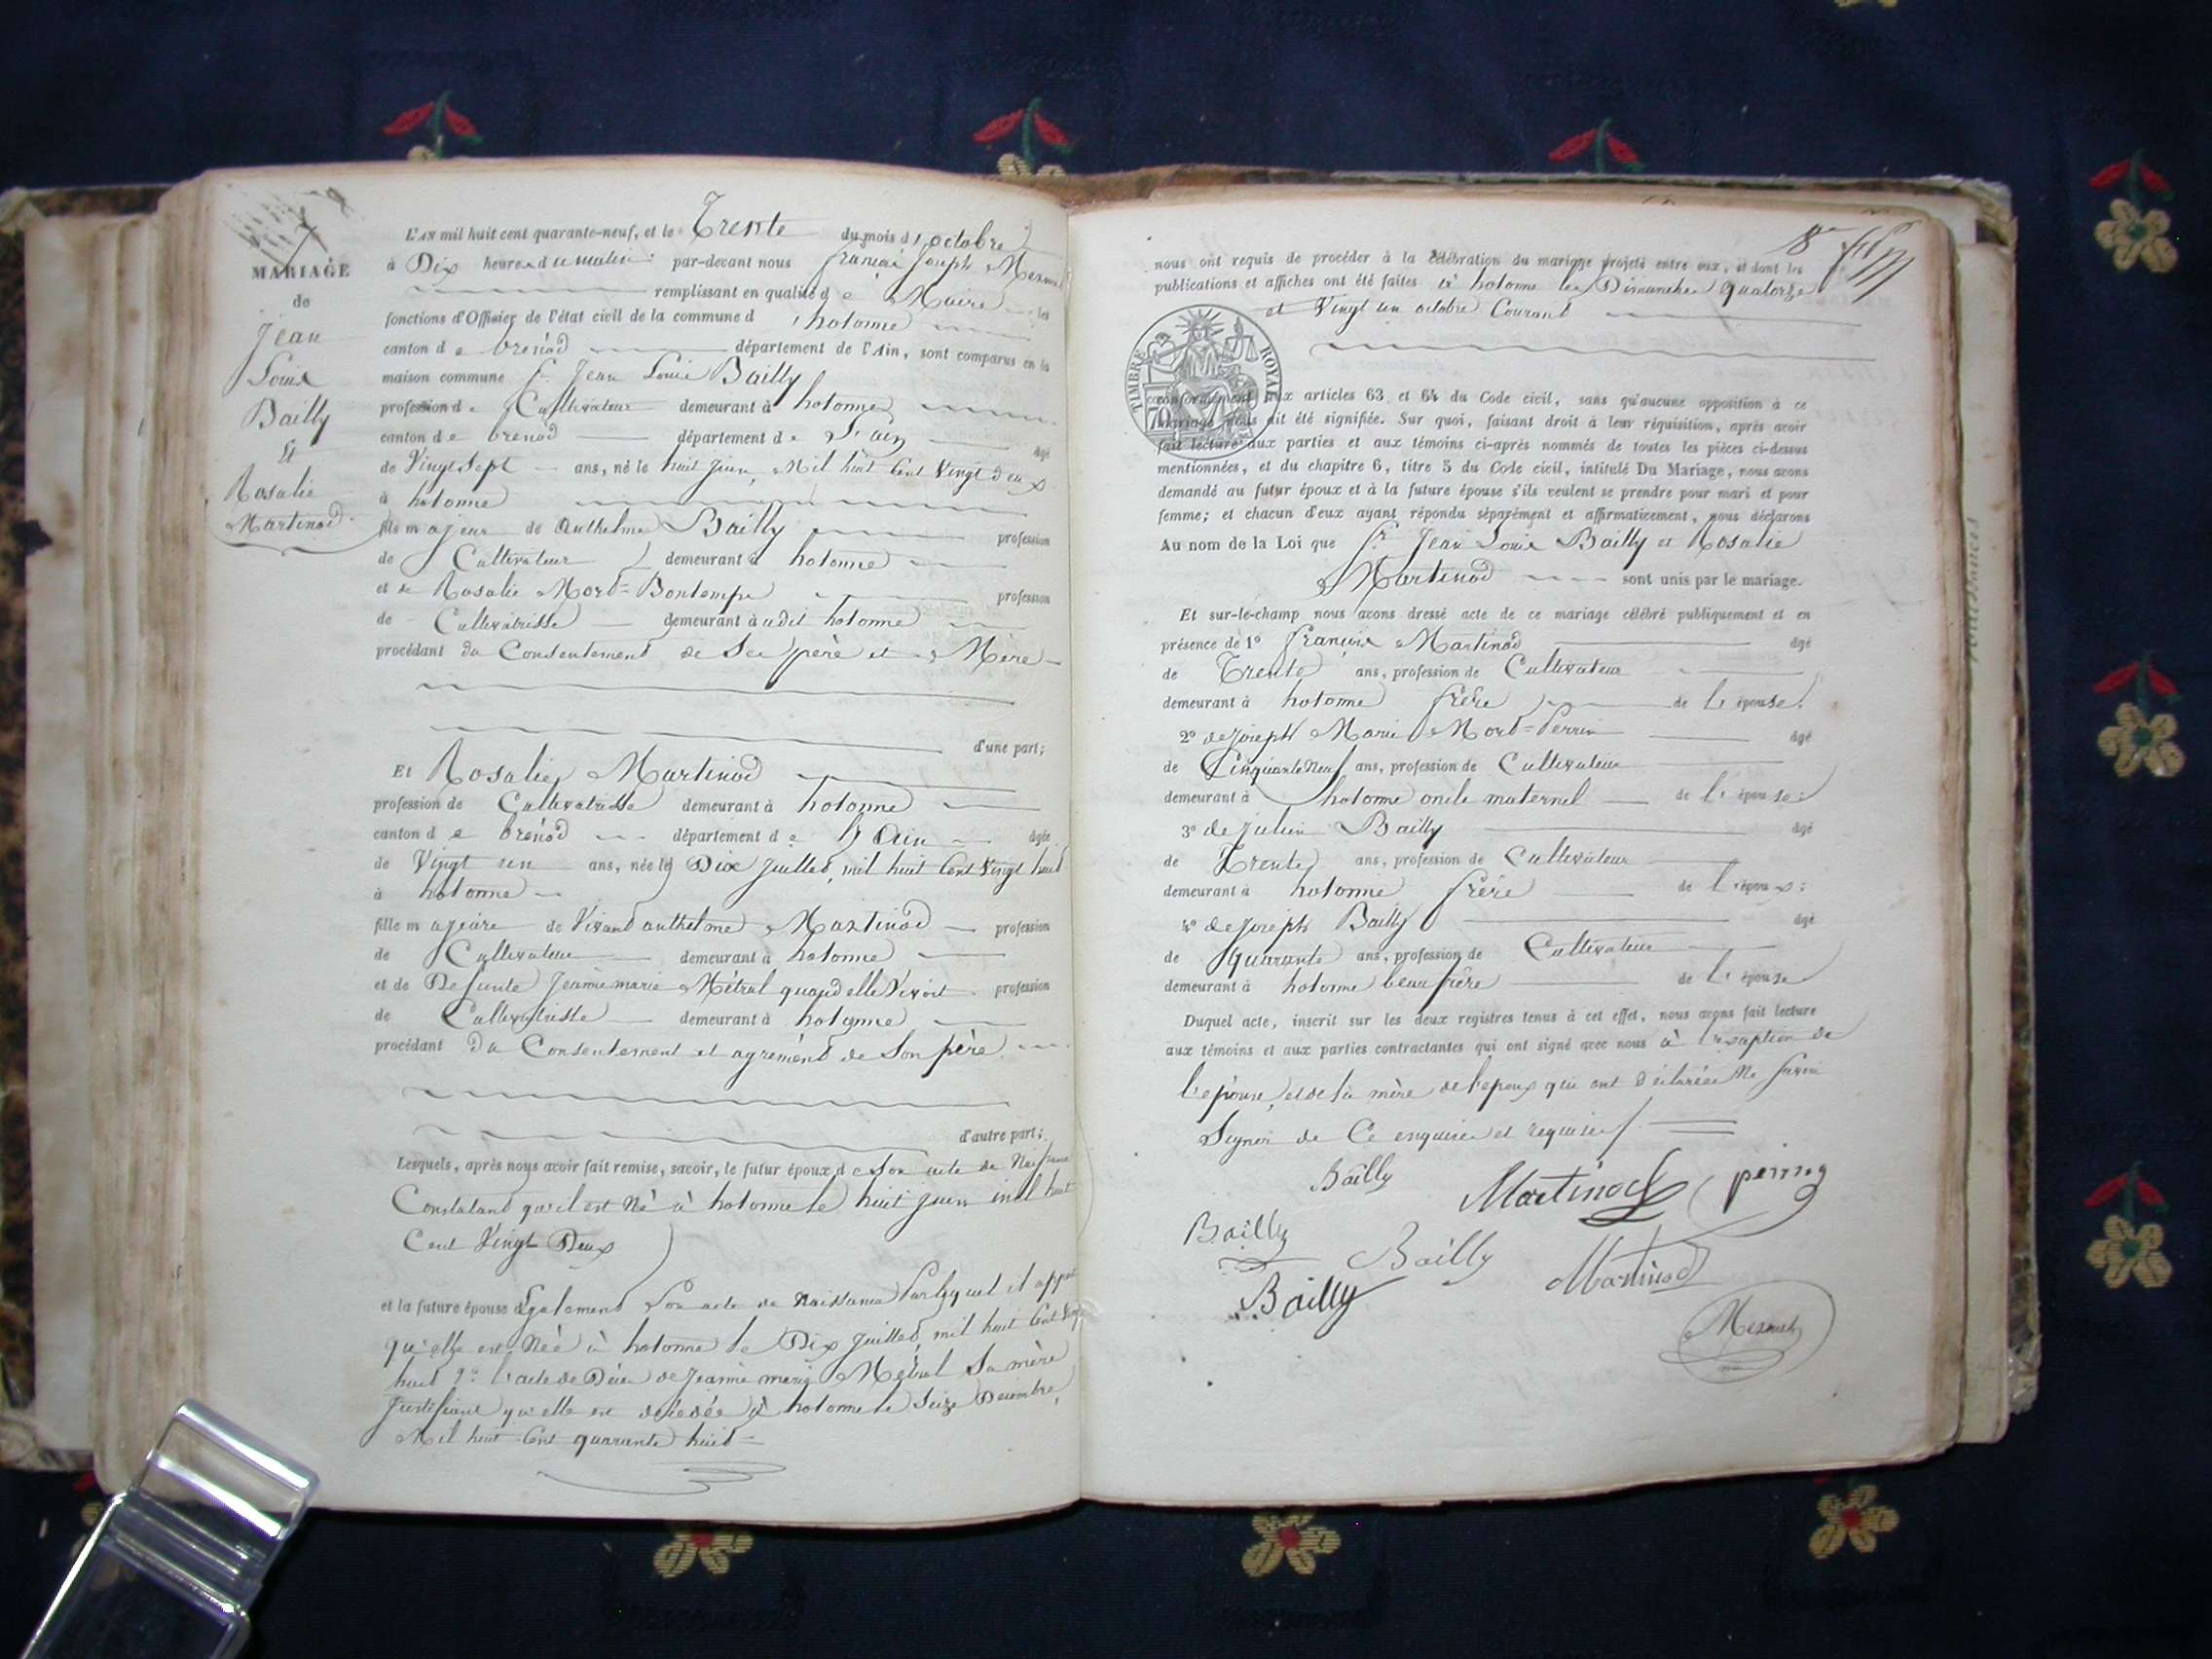 7
MARIAGE
de
Jean
Louis
Bailly
Et
Rosalie
Martinod
L'AN mil huit cent quarante-neuf, et le Trente du mois d'octobre
à Dix heures du matin par-devant nous françois Joseph Mermet
remplissant en qualité de Maire les
fonctions d'Officier de l'état civil de la commune d'hotonne
canton de brenod département de l'Ain, sont comparus en la
maison commune Sr. Jean Louis Bailly
profession de Cultivateur demeurant à hotonne
canton de brenod département de L'ain âgé
de Vingt Sept ans, né le huit juin, Mil huit Cent Vingt deux
à hotonne
fils majeur de Anthelme Bailly profession
de Cultivateur demeurant à hotonne
et de Rosalie Mort=Bontemps profession
de Cultivatrisse demeurant à udit hotonne
procédant du Consentement de Ses père et Mère
d'une part;
Et Rosalie Martinod
profession de Cultivatrisse demeurant à hotonne
canton de brénod département de l'Ain âgée
de Vingt un ans, née le Dix Juillet, mil huit Cent Vingt huit
à hotonne
fille majeure de Vivand anthelme Martinod profession
de Cultivateur demeurant à hotonne
et de Defunte Jeanne marie Métral quand elle Vivoit profession
de Cultivatrisse demeurant à hotonne
procédant du Consentement et agrément de Son père
d'autre part;
Lesquels, après nous avoir fait remise, savoir, le futur époux de Son acte de Naissance
Constatant qu'il est Né à hotonne le huit juin mil huit
Cent Vingt Deux
et la future épouse Egalement Son acte de Naissance Par lequel il appert
qu'elle est Née à hotonne le Dix Juillet, mil huit Cent Vingt
huit 2° l'acte de Décès de Jeanne marie Métral Sa mère
Justifiant qu'elle est décédée à hotonne le Seize Décembre,
Mil huit Cent quarante huit
8e
nous ont requis de procéder à la célébration du mariage projeté entre eux, et dont les
publications et affiches ont été faites à hotonne les Dimanches quatorze
et Vingt un octobre Courant
TIMBRE ROYAL
70
conformément aux articles 63 et 64 du Code civil, sans qu'aucune opposition à ce
mariage nous ait été signifiée. Sur quoi, faisant droit à leur réquisition, après avoir
fait lecture aux parties et aux témoins ci-après nommés de toutes les pièces ci-dessus
mentionnées, et du chapitre 6, titre 5 du Code civil, intitulé Du Mariage, nous avons
demandé au futur époux et à la future épouse s'ils veulent se prendre pour mari et pour
femme; et chacun d'eux ayant répondu séparément et affirmativement, nous déclarons
Au nom de la Loi que Sr. Jean Louis Bailly et Rosalie
Martinod sont unis par le mariage.
Et sur-le-champ nous avons dressé acte de ce mariage célébré publiquement et en
présence de 1° françois Martinod âgé
de Trente ans, profession de Cultivateur
demeurant à hotonne frère de l'épouse;
2° de joseph Marie Mort=Perrin âgé
de Cinquante Neuf ans, profession de Cultivateur
demeurant à hotonne oncle maternel de l'épouse;
3° de Julien Bailly âgé
de Trente ans, profession de Cultivateur
demeurant à hotonne frère de l'époux;
4° de joseph Bailly âgé
de quarante ans, profession de Cultivateur
demeurant à hotonne beau frère de l'épouse
Duquel acte, inscrit sur les deux registres tenus à cet effet, nous avons fait lecture
aux témoins et aux parties contractantes qui ont signé avec nous à l'exaption de
l'épouse, et de la mère de l'époux qui ont déclarées Ne Savoir
Signer de Ce enquises et requises
Bailly Martinod perring
Bailly Bailly Martinod
Bailly
Mermet